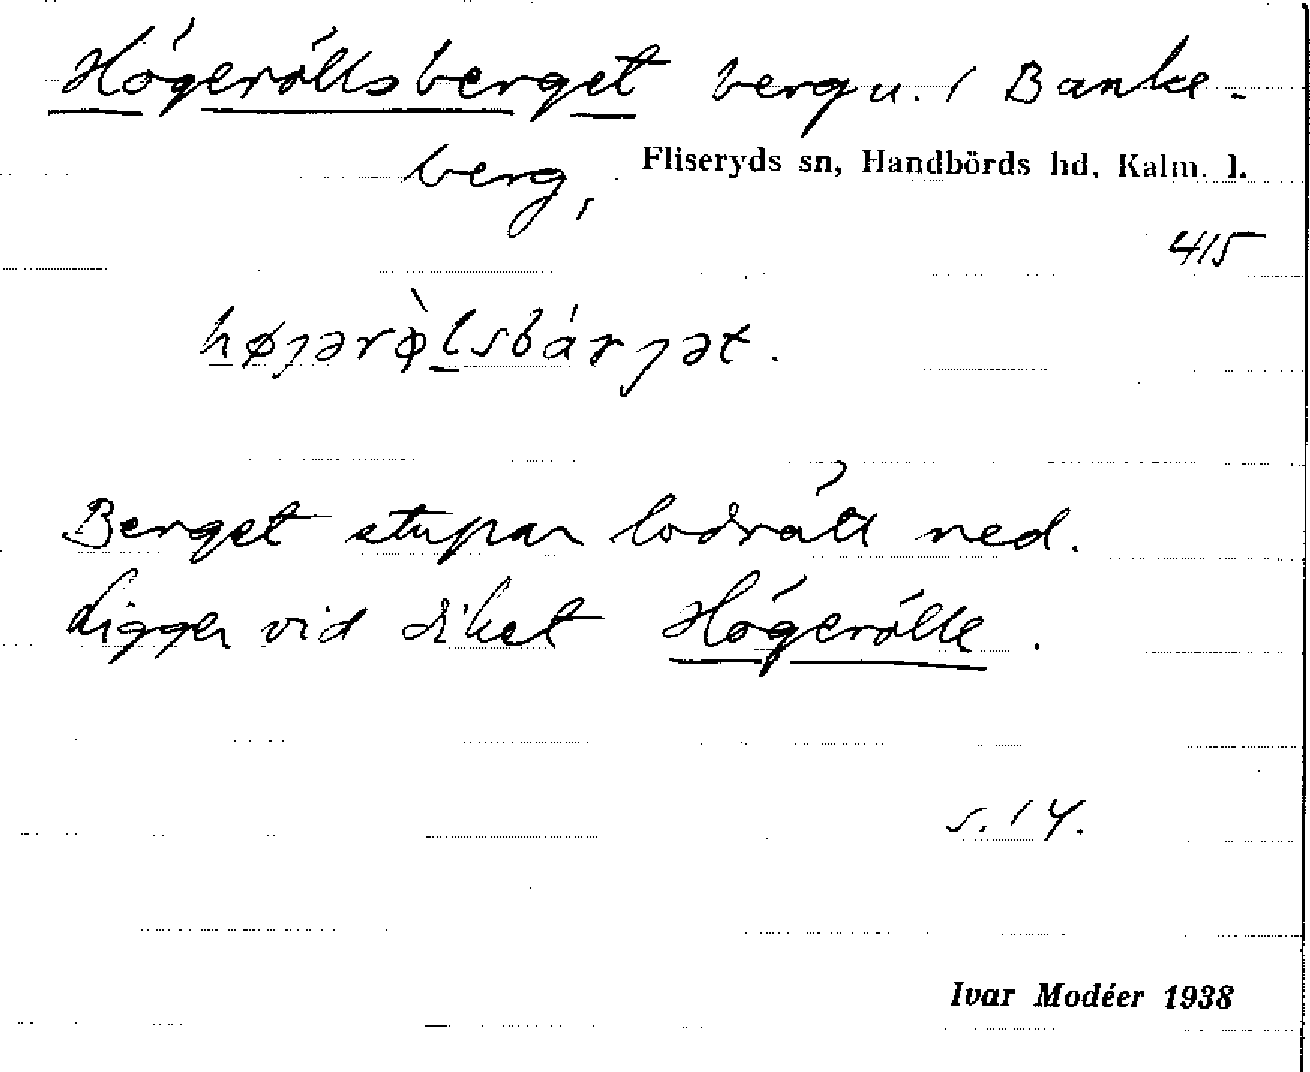 Högeröllsberget berg u. / Banke-
berg, Fliseryds sn, Handbörds hd, Kalm. l.
415
højərø̀lsbárjət.
Berget stupar lodrätt ned.
Ligger vid diket Högerölle.
s. 14.
Ivar Modéer 1938